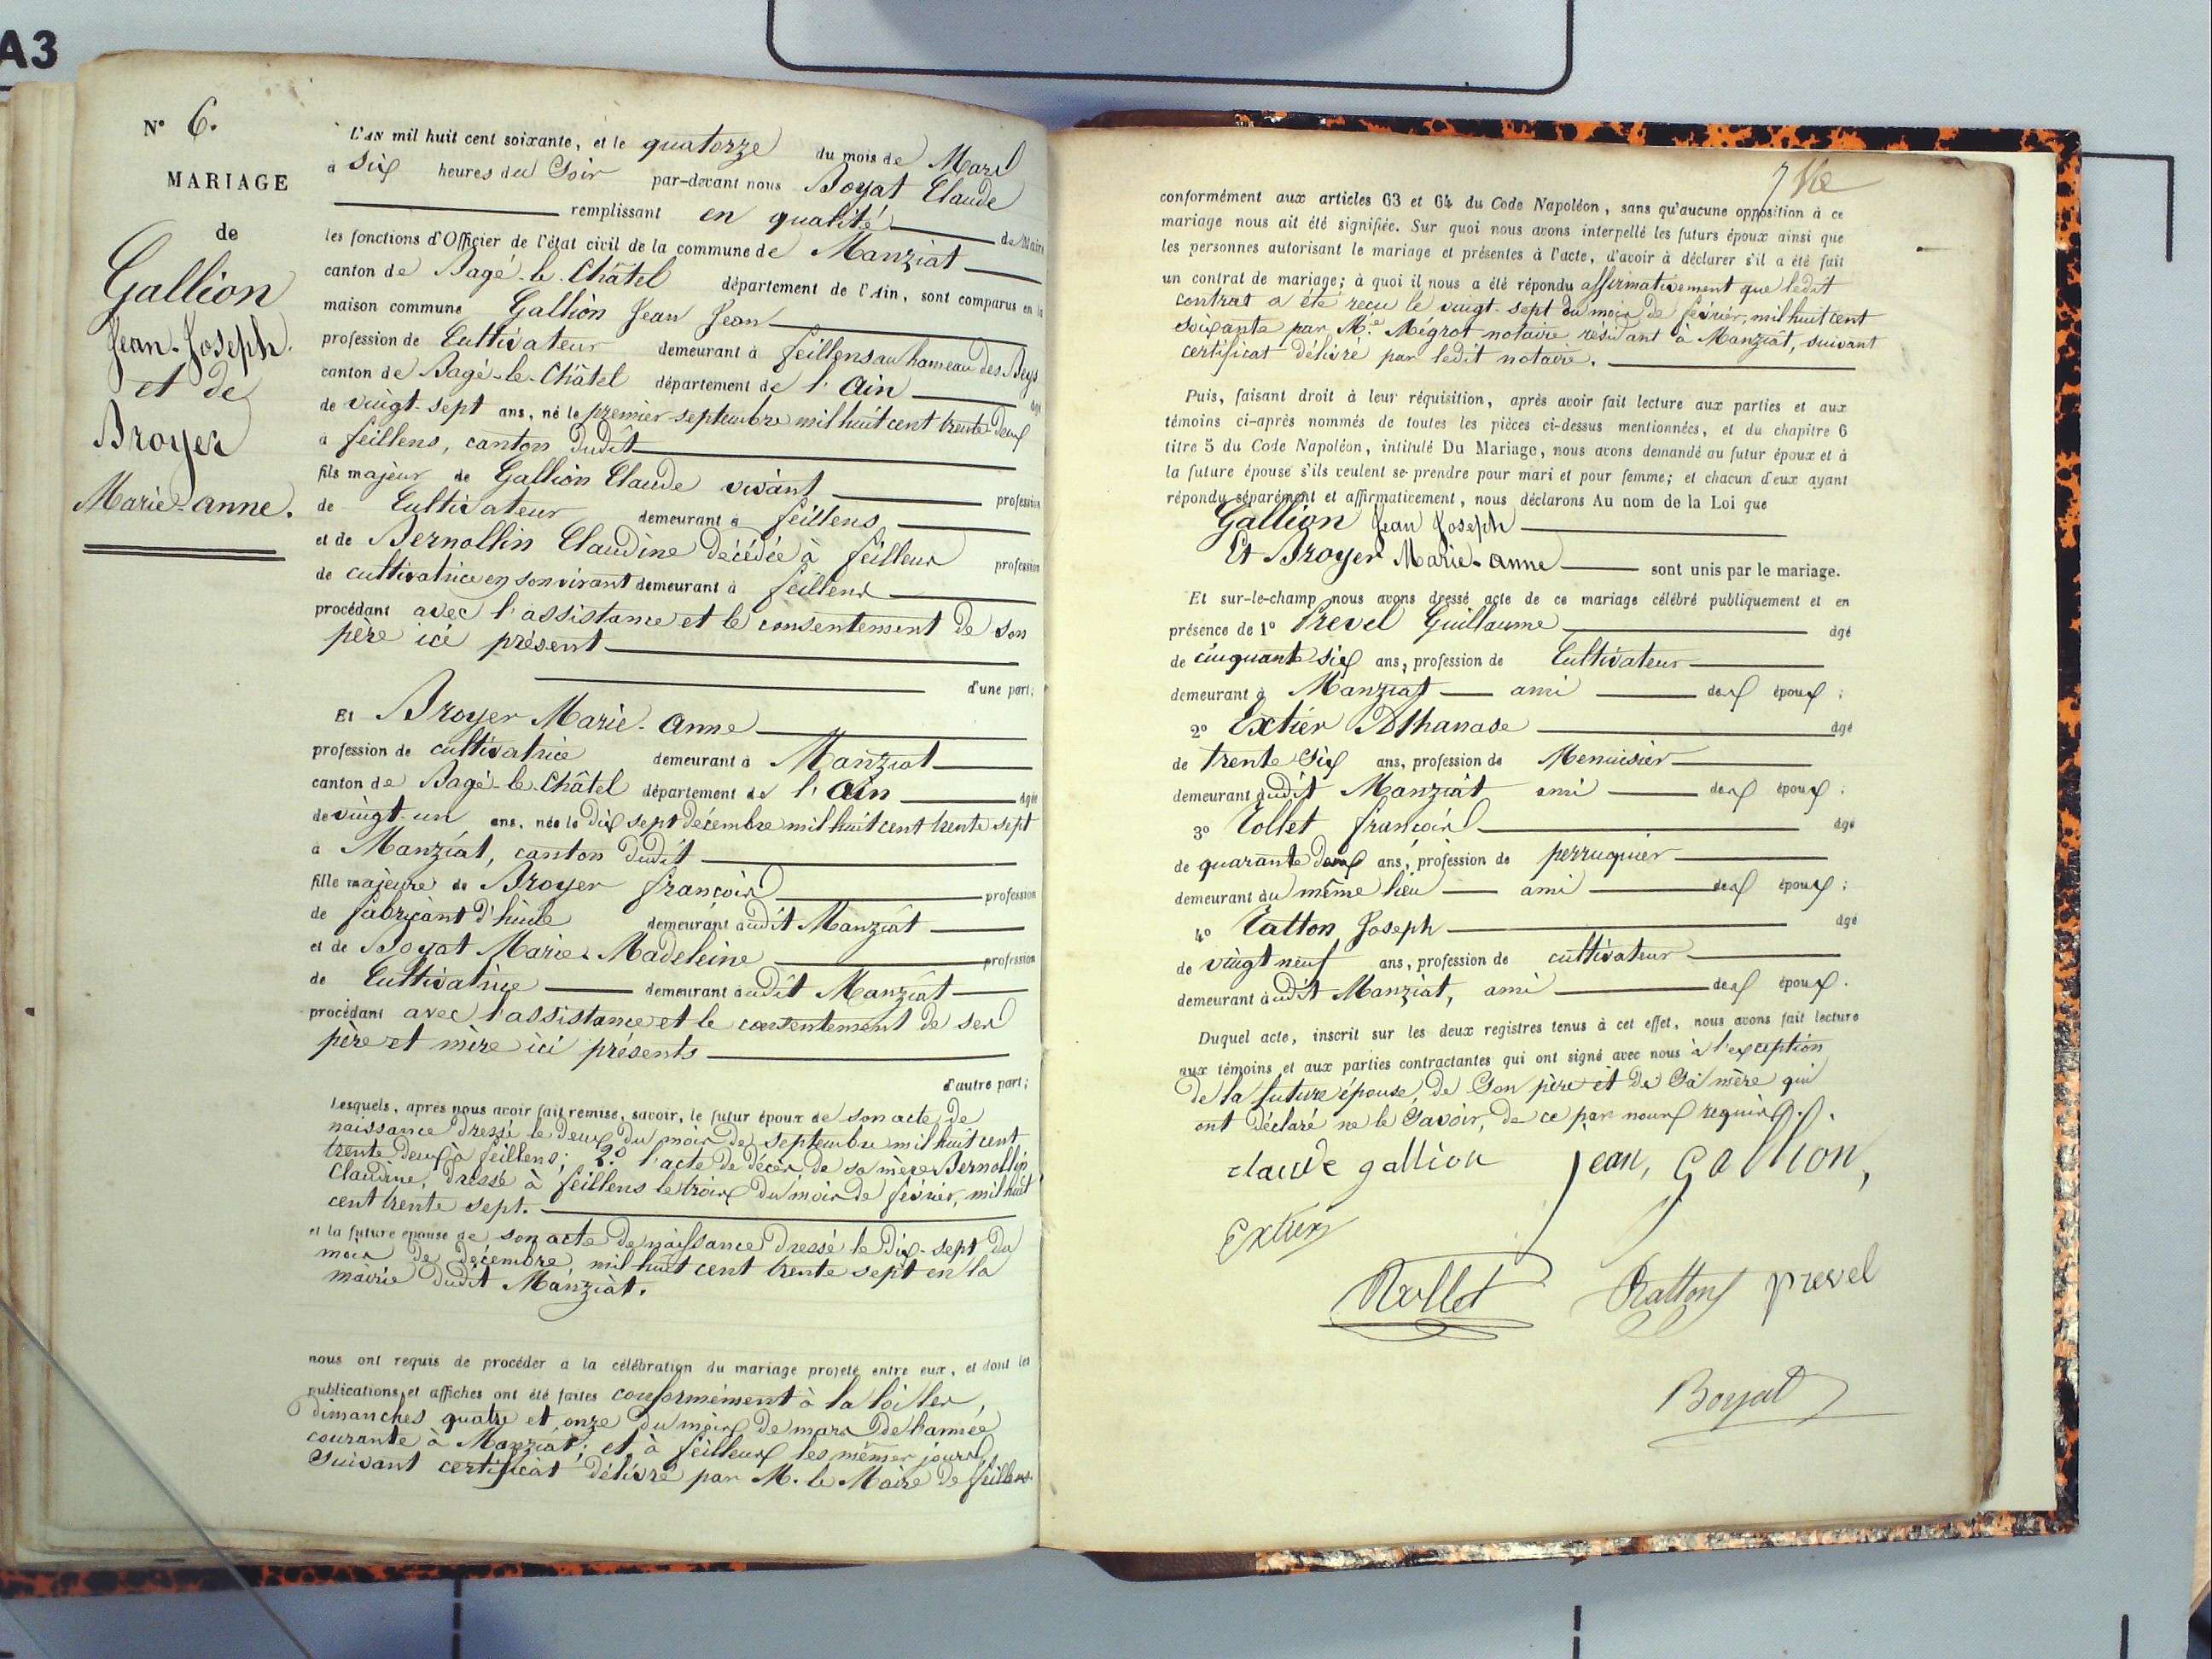 A3
N° 6.
MARIAGE
de
Gallion
Jean-Joseph.
et de
Broyer
Marie-anne.
L'AN mil huit cent soixante, et le quatorze du mois de Mars
à Six heures du Soir par-devant nous Boyat Claude
remplissant en qualité de Maire
les fonctions d'Officier de l'état civil de la commune de Manziat
canton de Bagé-le-Châtel département de l'Ain, sont comparus en la
maison commune Gallion Jean Jean
profession de Cultivateur demeurant à feillens au hameau des Beys
canton de Bagé-le-Châtel département de l'Ain âgé
de vingt-sept ans, né le premier septembre mil huit cent trente deux
à feillens, canton dudit
fils majeur de Gallion Claude vivant profession
de Cultivateur demeurant à feillens
et de Bernollin Claudine décédée à feillens profession
de cultivatrice en son vivant demeurant à feillens
procédant avec l'assistance et le consentement de son
père ici présent
d'une part;
Et Broyer Marie-anne
profession de cultivatrice demeurant à Manziat
canton de Bagé-le-Châtel département de l'Ain âgée
de vingt-un ans, née le dix sept décembre mil huit cent trente sept
à Manziat, canton dudit
fille majeure de Broyer françois profession
de fabricant d'huile demeurant audit Manziat
et de Boyat Marie Madeleine profession
de Cultivatrice demeurant audit Manziat
procédant avec l'assistance et le consentement de ses
père et mère ici présents
d'autre part;
Lesquels, après nous avoir fait remise, savoir, le futur époux de son acte de
naissance dressé le deux du mois de septembre mil huit cent
trente deux à feillens; 2° l'acte de décès de sa mère Bernollin
Claudine, dressé à feillens le trois du mois de février, mil huit
cent trente sept.
et la future épouse de son acte de naissance dressé le dix-sept du
mois de décembre, mil huit cent trente sept en la
mairie dudit Manziat.
nous ont requis de procéder à la célébration du mariage projeté entre eux, et dont les
publications et affiches ont été faites conformément à la loi les
dimanches quatre et onze du mois de mars de l'année
courante à Manziat; et à feillens les mêmes jours,
suivant certificat délivré par M. le Maire de feillens
conformément aux articles 63 et 64 du Code Napoléon, sans qu'aucune opposition à ce
mariage nous ait été signifiée. Sur quoi nous avons interpellé les futurs époux ainsi que
les personnes autorisant le mariage et présentes à l'acte, d'avoir à déclarer s'il a été fait
un contrat de mariage; à quoi il nous a été répondu affirmativement que ledit
contrat a été reçu le vingt-sept du mois de février, mil huit cent
soixante par Me. Mégrot notaire résidant à Manziat, suivant
certificat délivré par ledit notaire.
Puis, faisant droit à leur réquisition, après avoir fait lecture aux parties et aux
témoins ci-après nommés de toutes les pièces ci-dessus mentionnées, et du chapitre 6
titre 5 du Code Napoléon, intitulé Du Mariage, nous avons demandé au futur époux et à
la future épouse s'ils veulent se prendre pour mari et pour femme; et chacun d'eux ayant
répondu séparément et affirmativement, nous déclarons Au nom de la Loi que
Gallion Jean Joseph
Et Broyer Marie-anne sont unis par le mariage.
Et sur-le-champ nous avons dressé acte de ce mariage célébré publiquement et en
présence de 1° Prevel Guillaume âgé
de cinquante six ans, profession de Cultivateur
demeurant à Manziat ami des époux;
2° Extier Athanase âgé
de trente Six ans, profession de Menuisier
demeurant audit Manziat ami des époux;
3° Tollet françois âgé
de quarante deux ans, profession de perruquier
demeurant du même lieu ami des époux;
4° Catton Joseph âgé
de vingt neuf ans, profession de cultivateur
demeurant audit Manziat, ami des époux.
Duquel acte, inscrit sur les deux registres tenus à cet effet, nous avons fait lecture
aux témoins et aux parties contractantes qui ont signé avec nous à l'exception
de la future épouse, de Son père et de Sa mère qui
ont déclaré ne le Savoir, de ce par nous requis.
claude gallion Jean, Gallion,
Extier
Tollet Catton prevel
Boyat